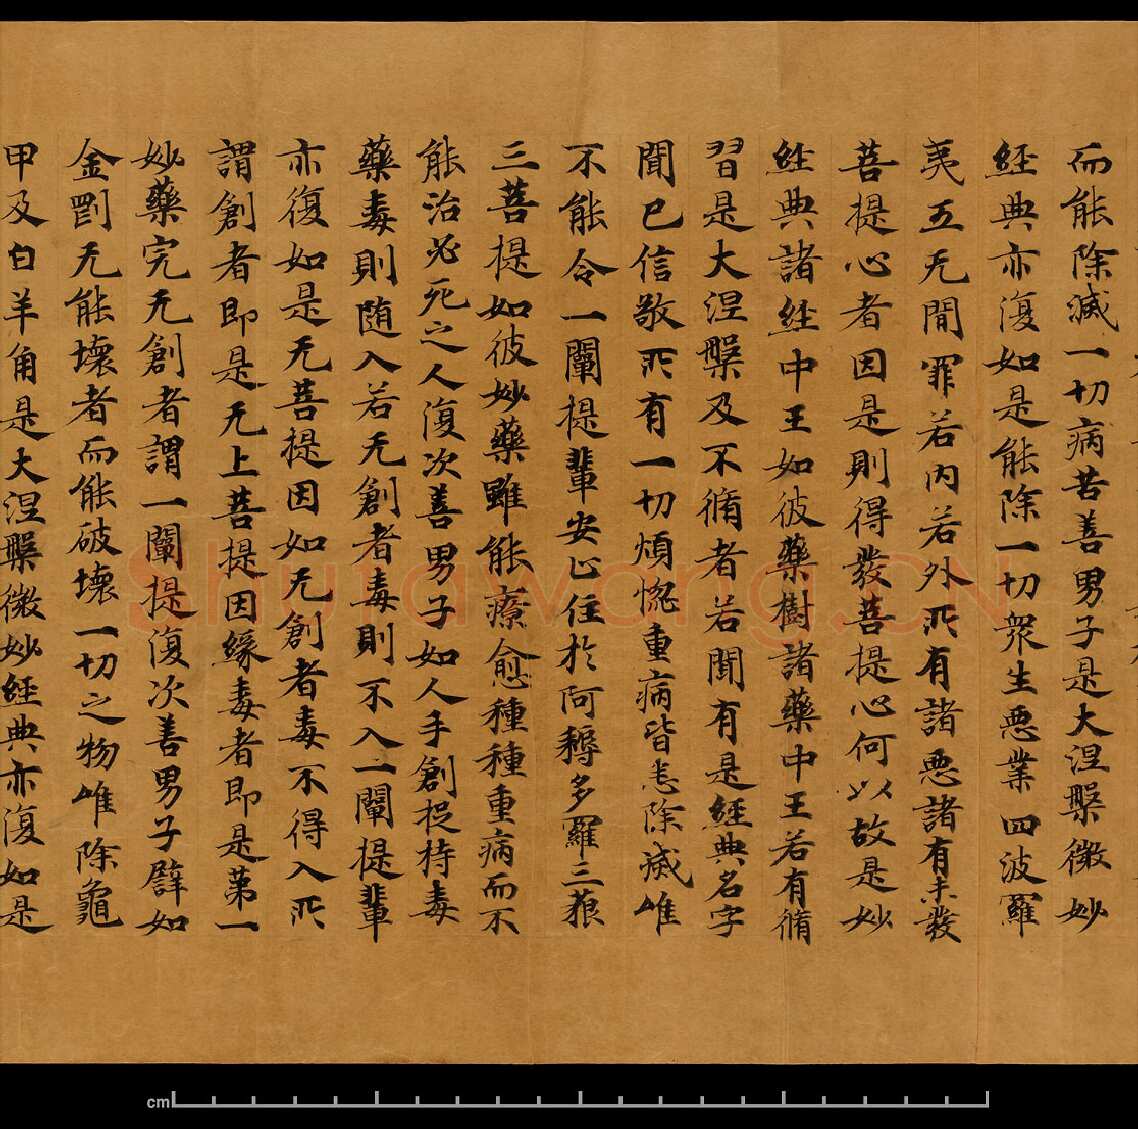 而能除滅一切病苦善男子是大涅槃微妙
經典亦復如是能除一切衆生惡業四波羅
夷五无間罪若内若外所有諸惡諸有未發
菩提心者因是則得發菩提心何以故是妙
經典諸經中王如彼藥樹諸藥中王若有脩
習是大涅槃及不脩者若聞有是經典名字
聞已信敬所有一切煩惚重病皆悉除滅唯
不能令一闡提輩安止住於阿耨多羅三藐
三菩提如彼妙藥雖能療愈種種重病而不
能治必死之人復次善男子如人手創捉持毒
藥毒則随入若无創者毒則不入一闡提輩
亦復如是无菩提因如无創者毒不得入所
謂創者即是无上菩提因緣毒者即是苐一
妙藥完无創者謂一闡提復次善男子譬如
金剛无能壞者而能破壞一切之物唯除龜
甲及白羊角是大涅槃微妙經典亦復如是
Shufawang.CN
cm